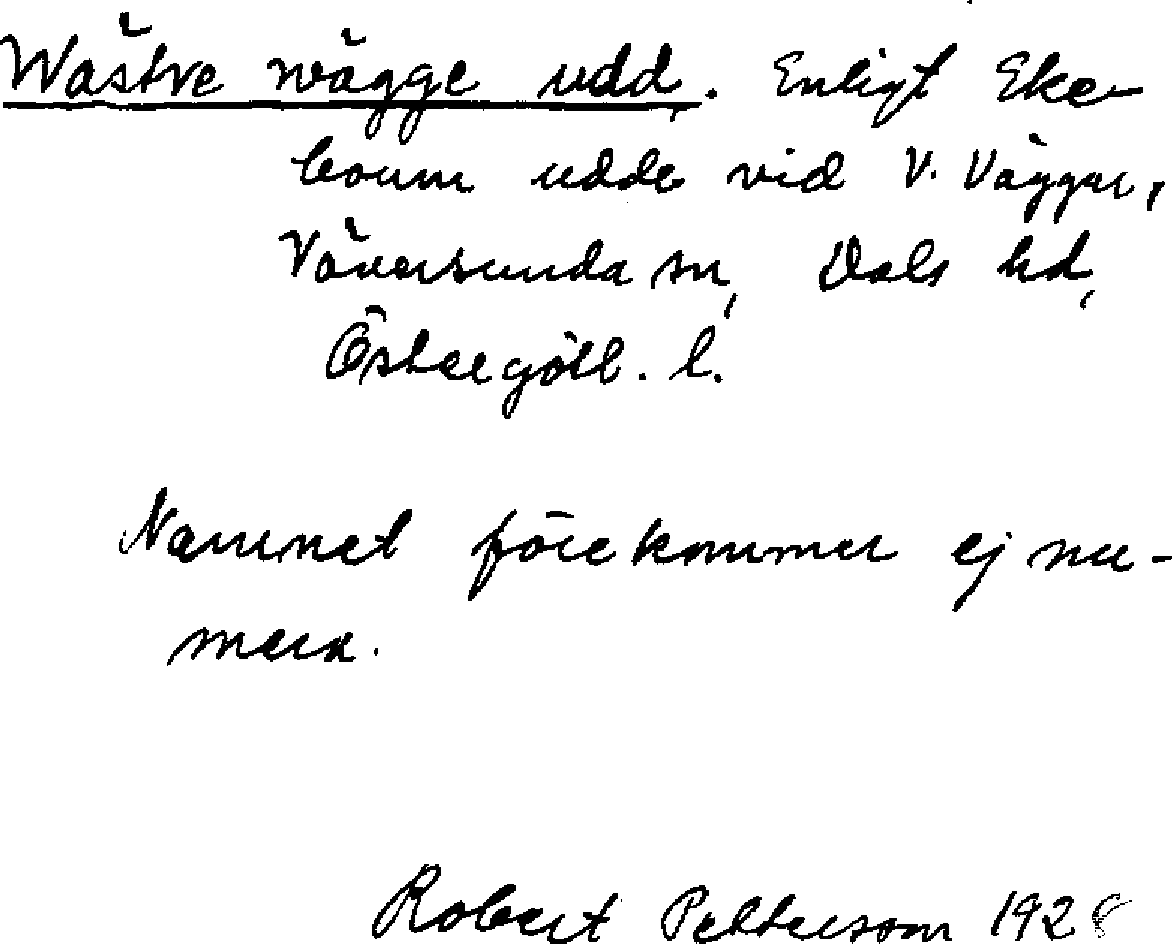 Wästre wägge udd. Enligt Eke-
boum udde vid V. Väggar,
Väversunda sn, Dals hd,
Östergötl. l.
Namnet förekommer ej nu-
mera.
Robert Pettersom 1928